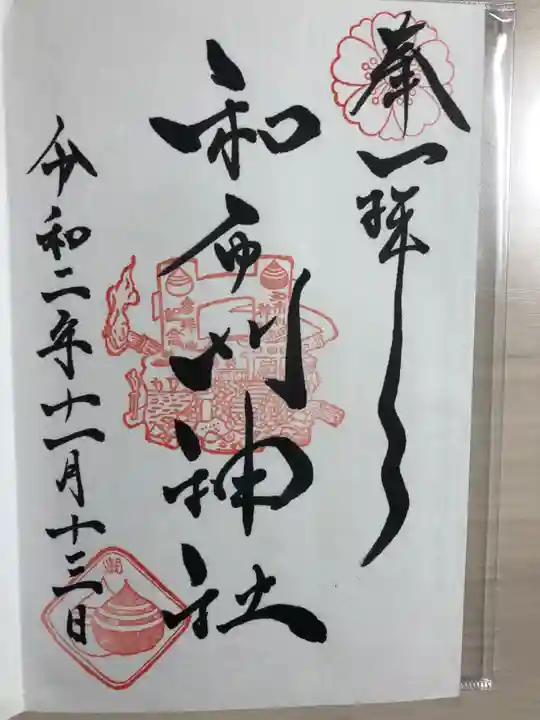 奉拝
和布刈神社
令和二年十一月十三日
潮